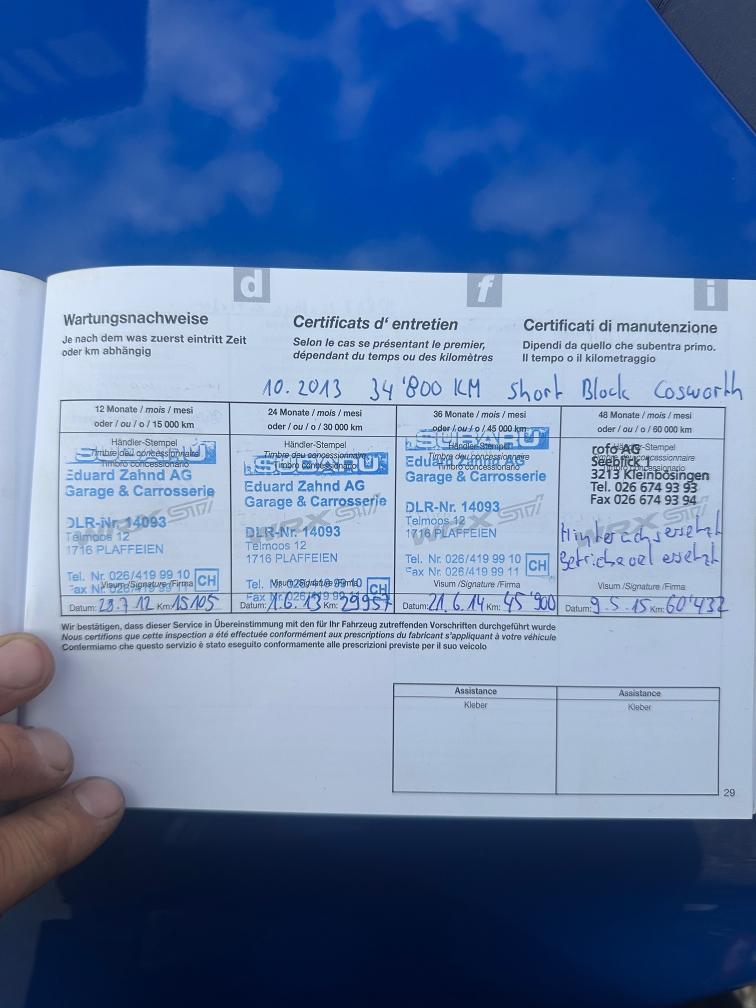 d
f
i
Wartungsnachweise
Je nach dem was zuerst eintritt Zeit
oder km abhängig
Certificats d' entretien
Selon le cas se présentant le premier,
dépendant du temps ou des kilomètres
Certificati di manutenzione
Dipendi da quello che subentra primo.
Il tempo o il kilometraggio
10.2013 34'800 KM Short Block Cosworth
12 Monate / mois / mesi
oder / ou / o / 15 000 km
Händler-Stempel
Timbre deu concessionnaire
Timbro concessionario
SUBARU
Eduard Zahnd AG
Garage & Carrosserie
DLR-Nr. 14093
WRX STI
Telmoos 12
1716 PLAFFEIEN
Tel. Nr. 026/419 99 10
Fax Nr. 026/419 99 11
CH
Visum /Signature /Firma
Datum: 28.7.12 Km: 15105
24 Monate / mois / mesi
oder / ou / o / 30 000 km
Händler-Stempel
Timbre deu concessionnaire
Timbro concessionario
SUBARU
Eduard Zahnd AG
Garage & Carrosserie
DLR-Nr. 14093
WRX STI
Telmoos 12
1716 PLAFFEIEN
Tel. Nr. 026/419 99 10
Fax Nr. 026/419 99 11
CH
Visum /Signature /Firma
Datum: 1.6.13 Km: 29957
36 Monate / mois / mesi
oder / ou / o / 45 000 km
Händler-Stempel
Timbre deu concessionnaire
Timbro concessionario
SUBARU
Eduard Zahnd AG
Garage & Carrosserie
DLR-Nr. 14093
WRX STI
Telmoos 12
1716 PLAFFEIEN
Tel. Nr. 026/419 99 10
Fax Nr. 026/419 99 11
CH
Visum /Signature /Firma
Datum: 21.6.14 Km: 45'900
48 Monate / mois / mesi
oder / ou / o / 60 000 km
Händler-Stempel
Timbre deu concessionnaire
Timbro concessionario
rofo AG
Seeblick 1
3213 Kleinbösingen
Tel. 026 674 93 93
Fax 026 674 93 94
WRX STI
ersetzt
ersetzt
Visum /Signature /Firma
Datum: 9.5.15 Km: 60'432
Wir bestätigen, dass dieser Service in Übereinstimmung mit den für Ihr Fahrzeug zutreffenden Vorschriften durchgeführt wurde
Nous certifions que cette inspection a été effectuée conformément aux prescriptions du fabricant s'appliquant à votre véhicule
Confermiamo che questo servizio è stato eseguito conformamente alle prescrizioni previste per il suo veicolo
Assistance
Kleber
Assistance
Kleber
29